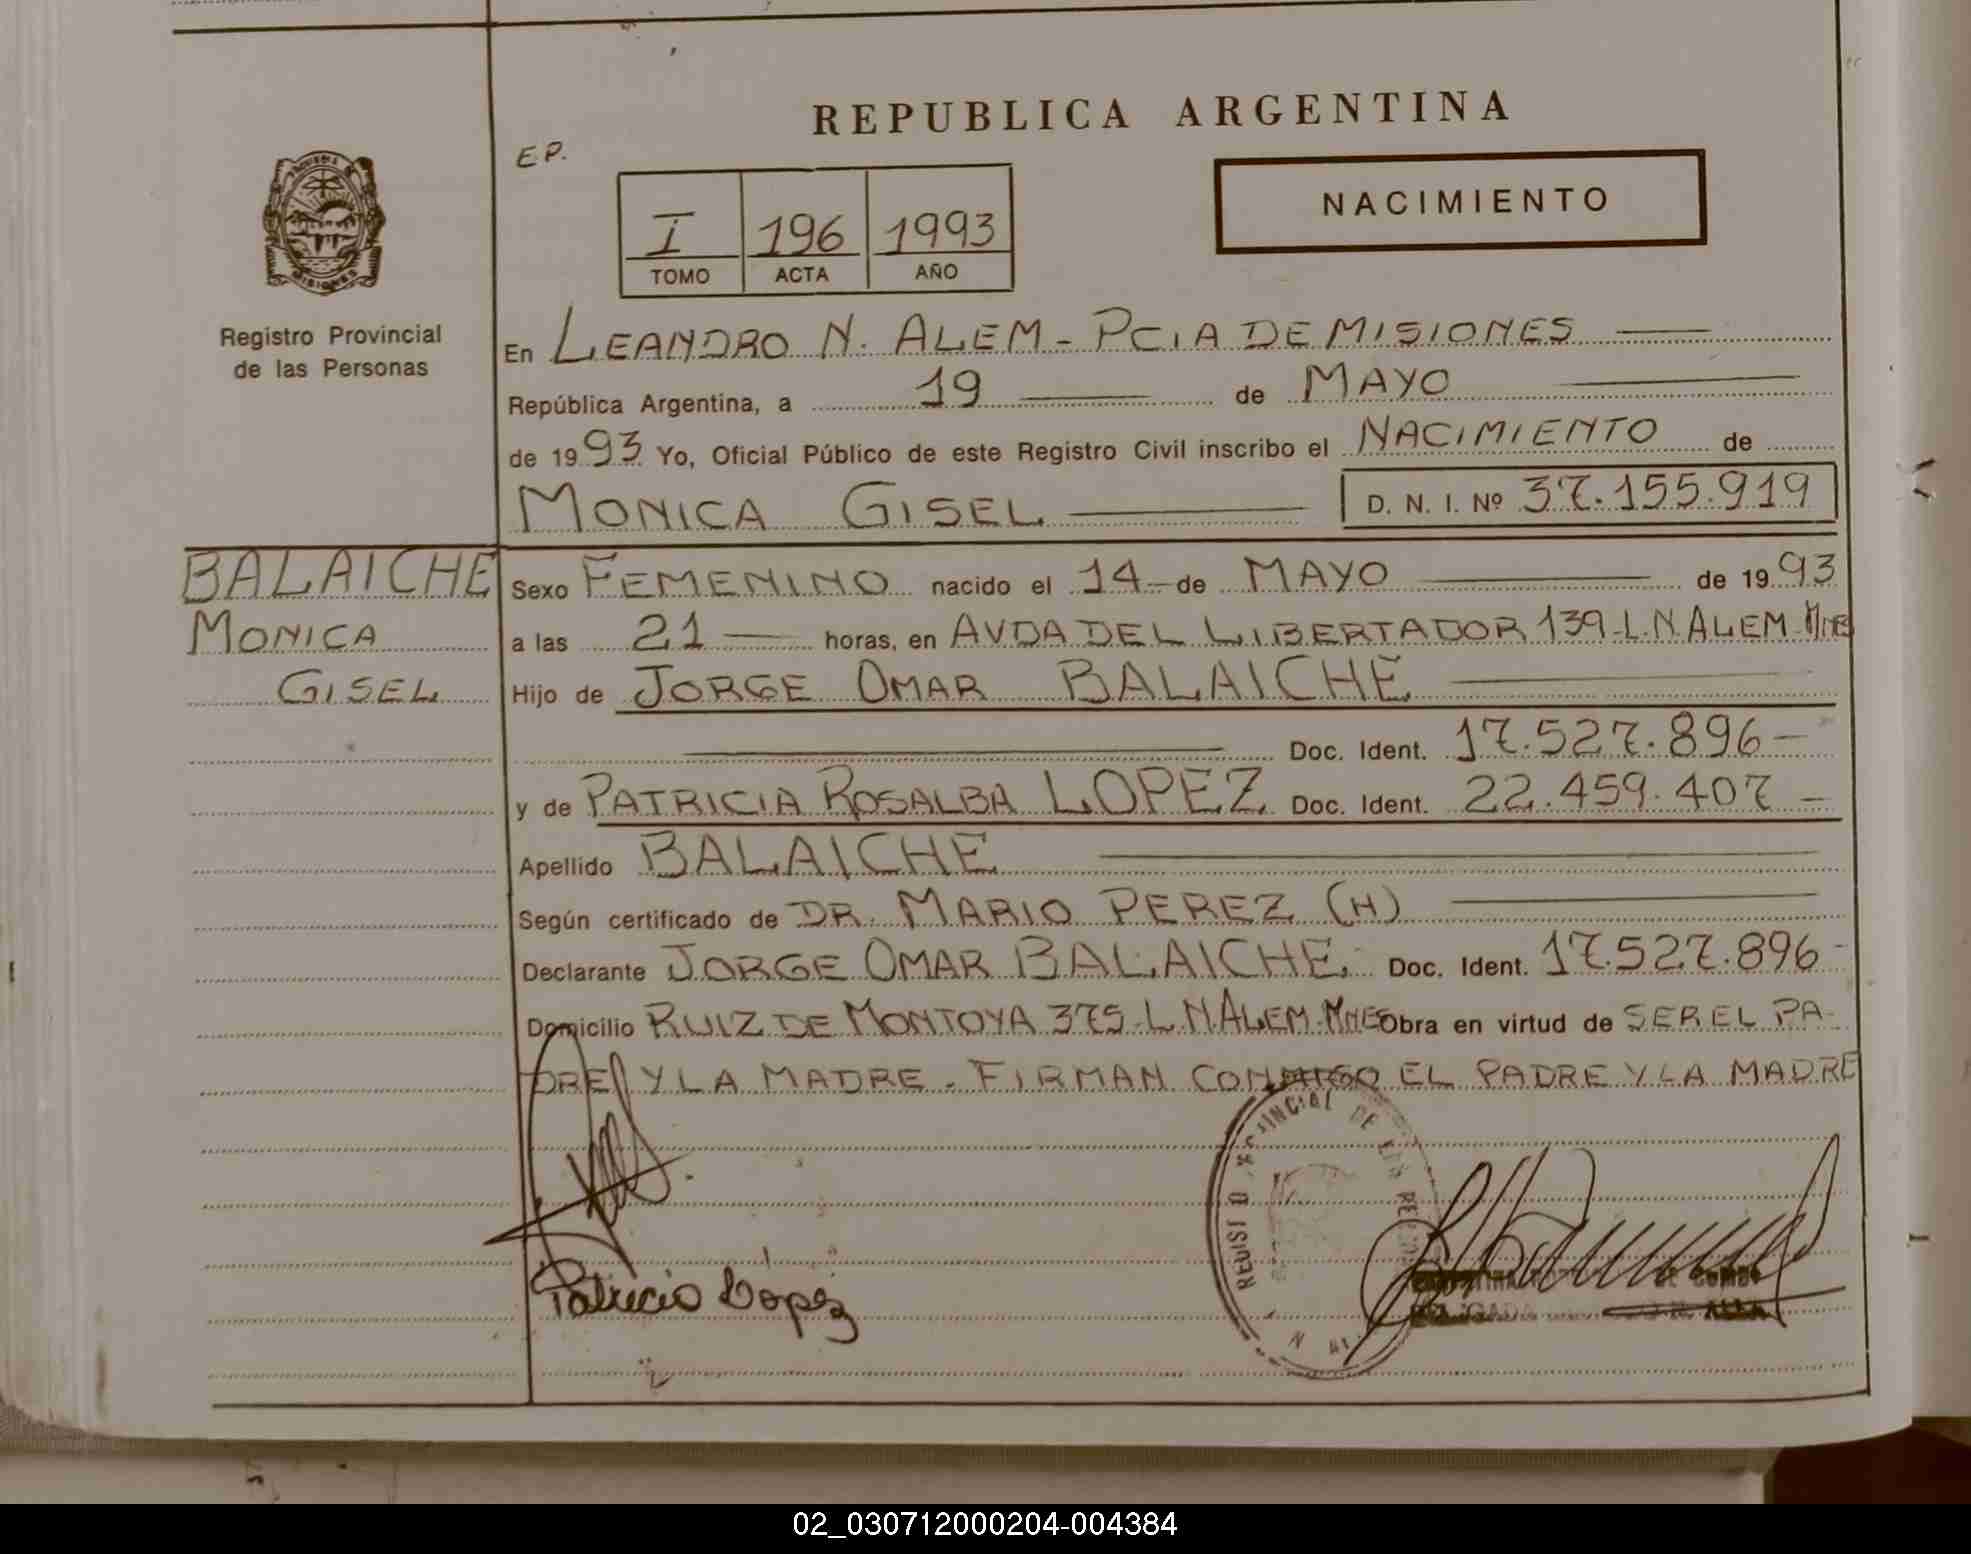 REPUBLICA ARGENTINA
E.P.
I 196 1993
TOMO ACTA AÑO
NACIMIENTO
Registro Provincial
de las Personas
En LEANDRO N. ALEM - PCIA DE MISIONES
República Argentina, a 19 de MAYO
de 1993 Yo, Oficial Público de este Registro Civil inscribo el NACIMIENTO de
MONICA GISEL D. N. I. Nº 37.155.919
BALAICHE
MONICA
GISEL
Sexo FEMENINO nacido el 14 de MAYO de 1993
a las 21 horas, en AVDA DEL LIBERTADOR 139-L.N.ALEM-Mnes
Hijo de JORGE OMAR BALAICHE
Doc. Ident. 17.527.896-
y de PATRICIA ROSALBA LOPEZ Doc. Ident. 22.459.407-
Apellido BALAICHE
Según certificado de DR. MARIO PEREZ (H)
Declarante JORGE OMAR BALAICHE. Doc. Ident. 17.527.896-
Domicilio RUIZ DE MONTOYA 375-L.N.ALEM-Mnes Obra en virtud de SER EL PA-
DRE Y LA MADRE. FIRMAN CONMIGO EL PADRE Y LA MADRE
Patricia Lopez
02_030712000204-004384